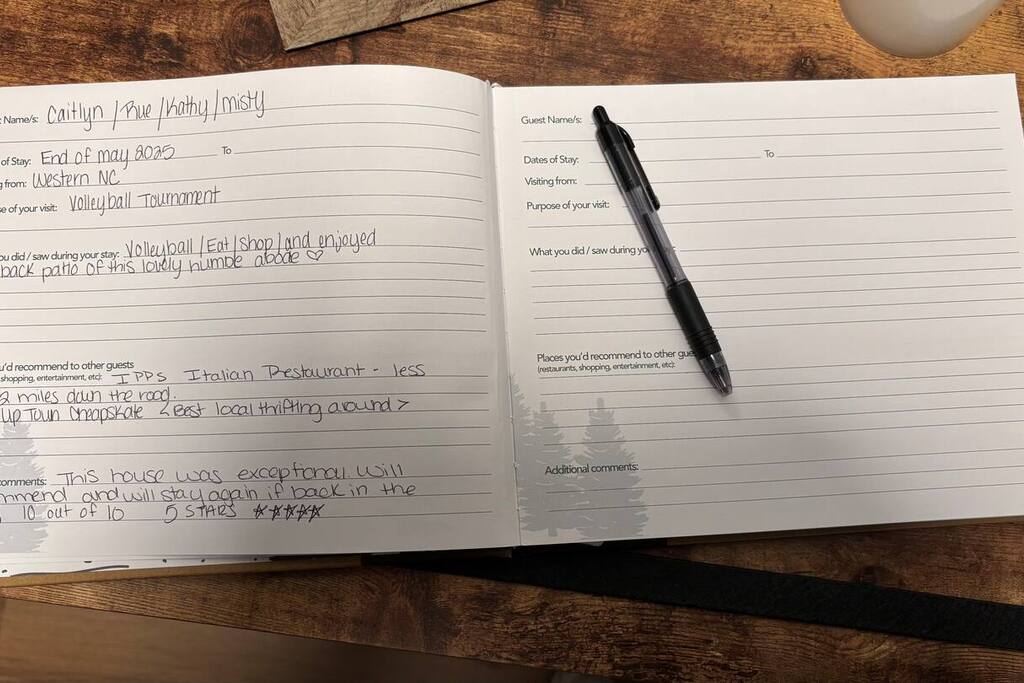 Name/s: Caitlyn / Rue / Kathy / Misty
of Stay: End of may 2025 To
g from: Western NC
se of your visit: Volleyball Tournament
ou did / saw during your stay: Volleyball / Eat / Shop / and enjoyed
back patio of this lovely humble abode ♡
u'd recommend to other guests
shopping, entertainment, etc): IPPS Italian Restaurant - less
2 miles down the road.
Up Town Cheapskate < Best local thrifting around >
omments: This house was exceptional. Will
mmend and will stay again if back in the
10 out of 10 5 STARS ☆☆☆☆☆
Guest Name/s:
Dates of Stay: To
Visiting from:
Purpose of your visit:
What you did / saw during yo
Places you'd recommend to other gue
(restaurants, shopping, entertainment, etc):
Additional comments: